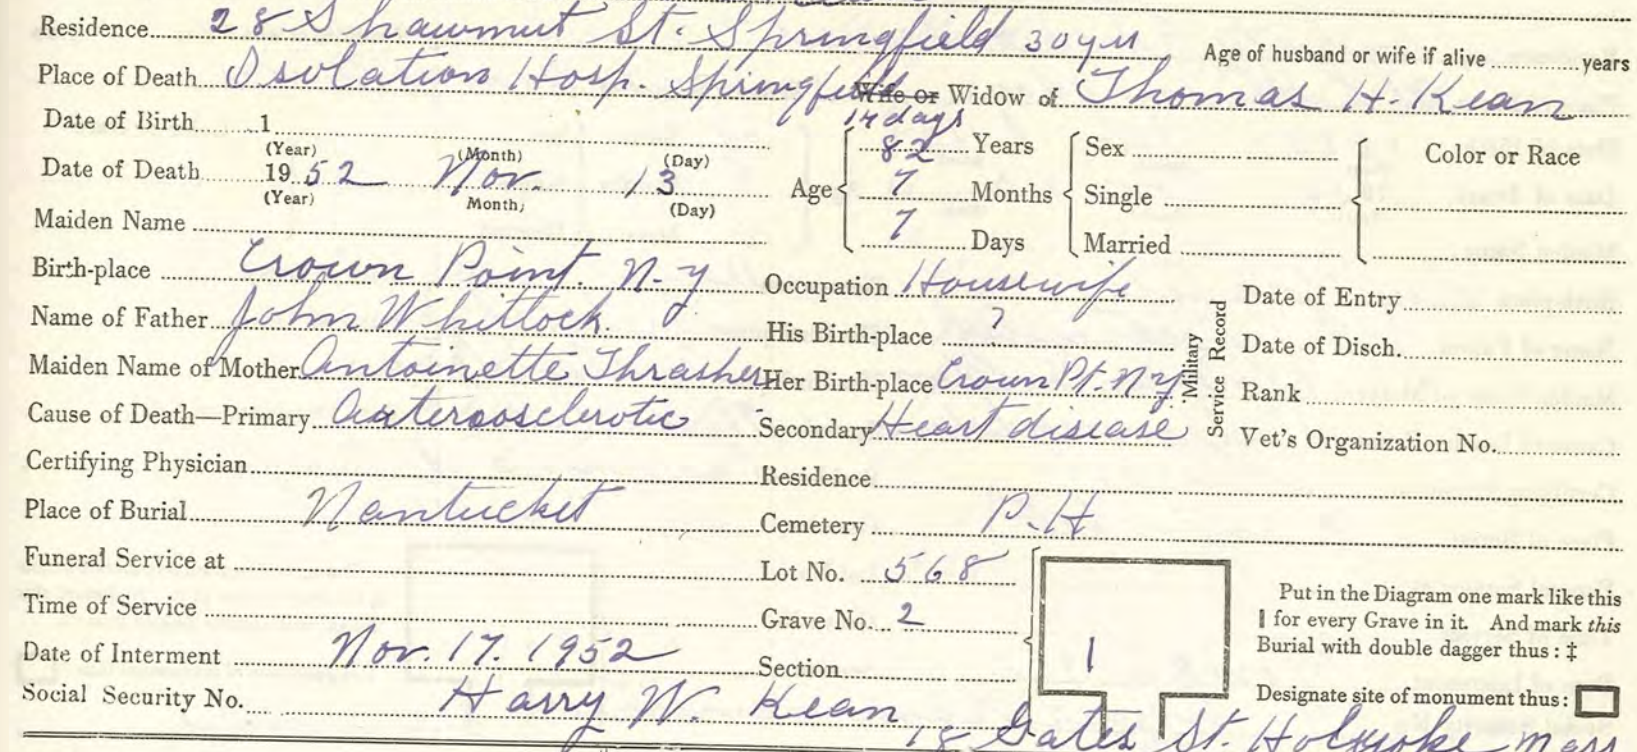 Residence 28 Shawmut St. Springfield 30 yrs Age of husband or wife if alive years
Place of Death Isolation Hosp. Springfield Wife or Widow of Thomas H. Kean
14 days
Date of Birth 1
(Year) (Month) (Day)
Date of Death 1952 Nov. 13
(Year) Month, (Day)
Age 82 Years 7 Months 7 Days
Sex
Single
Married
Color or Race
Maiden Name
Birth-place Crown Point. N-y Occupation Housewife
Name of Father John Whitlock. His Birth-place ?
Maiden Name of Mother Antoinette Thrasher Her Birth-place Crown Pt. N y
Cause of Death—Primary Secondary Heart disease
Military Service Record
Date of Entry
Date of Disch.
Rank
Vet's Organization No.
Certifying Physician Residence
Place of Burial Nantucket Cemetery P.H
Funeral Service at Lot No. 568
Time of Service Grave No. 2
Date of Interment Nov. 17. 1952 Section
Social Security No. Harry W. Kean
18 Gates St. Holyoke Mass
Put in the Diagram one mark like this
| for every Grave in it. And mark this
Burial with double dagger thus : ‡
Designate site of monument thus: